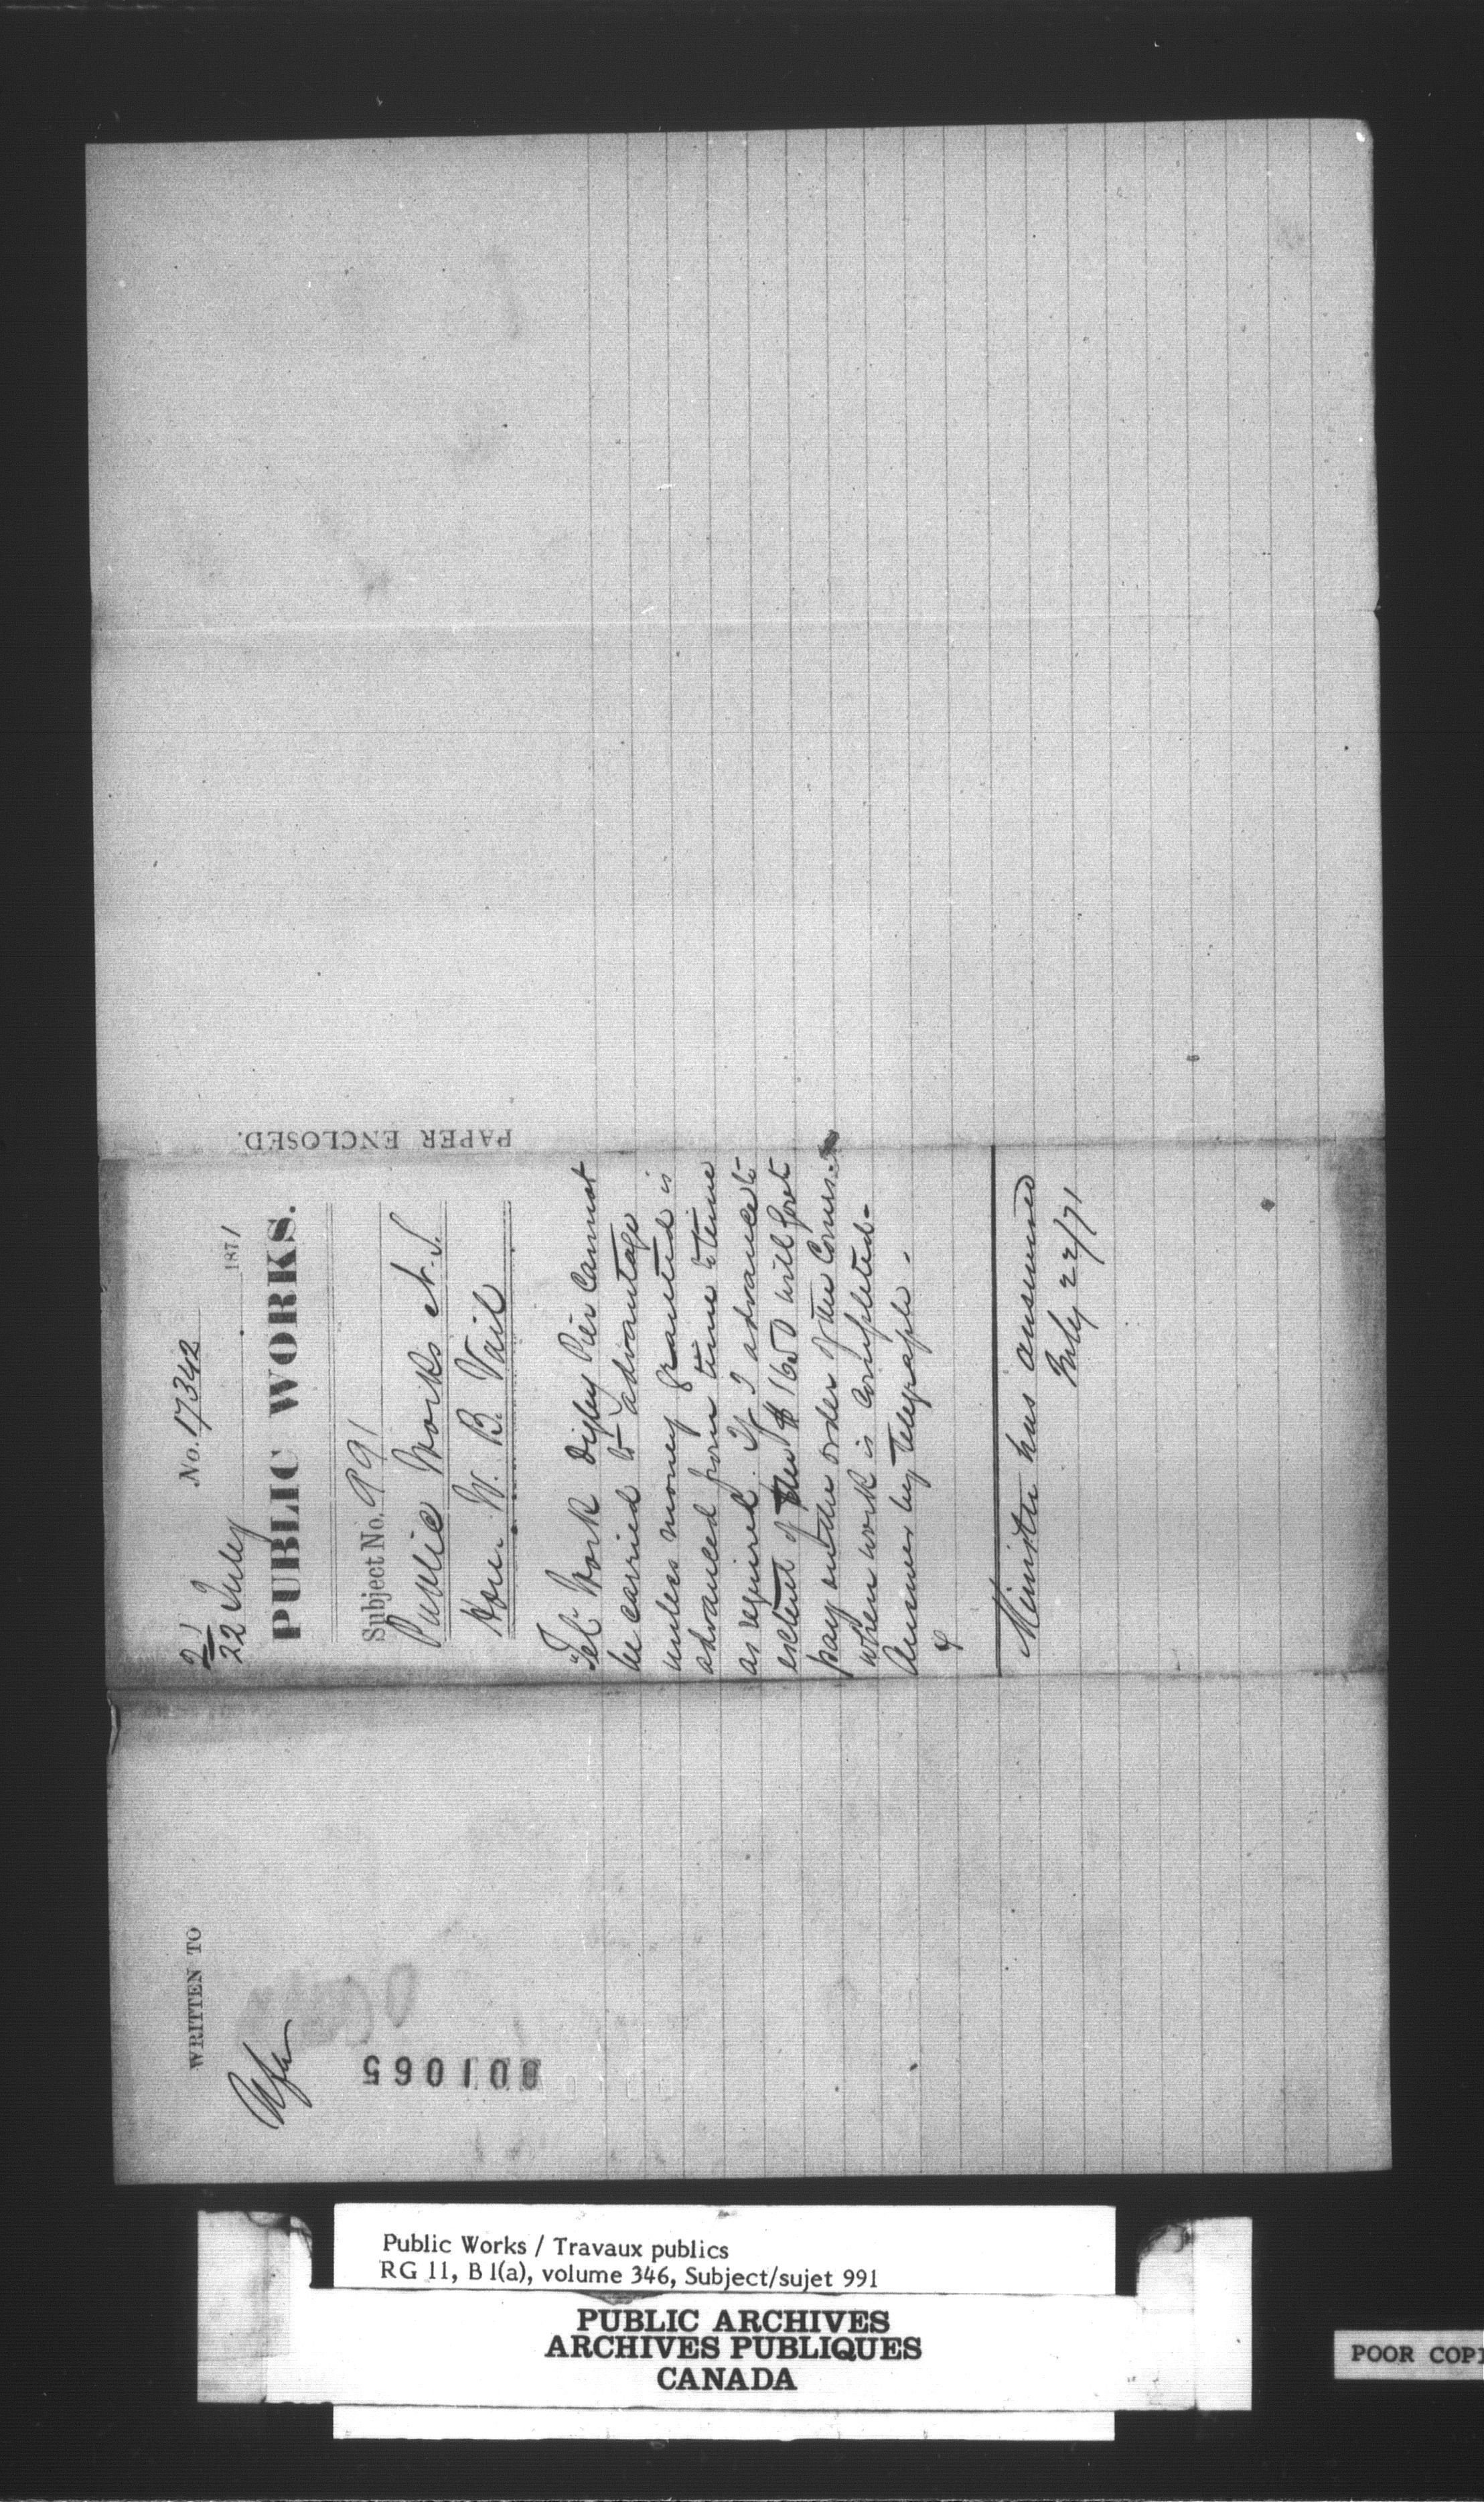 21
No. 17342
22 July 1871
PUBLIC WORKS.
Subject No. 991
Public Works N.S.
Hon. W. B. Vail
"Tel" Work Digby Pier Cannot
be carried to advantage
unless money granted is
advanced from time to time
as required. If I advance to
extent of the $1650 will Govt
pay on the order of the Comrs.
when work is completed.
Answer by telegraph.
Minister has answered
July 22/71
PAPER ENCLOSED.
WRITTEN TO
001065
Public Works / Travaux publics
RG 11, B 1(a), volume 346, Subject/sujet 991
PUBLIC ARCHIVES
ARCHIVES PUBLIQUES
CANADA
POOR COPI